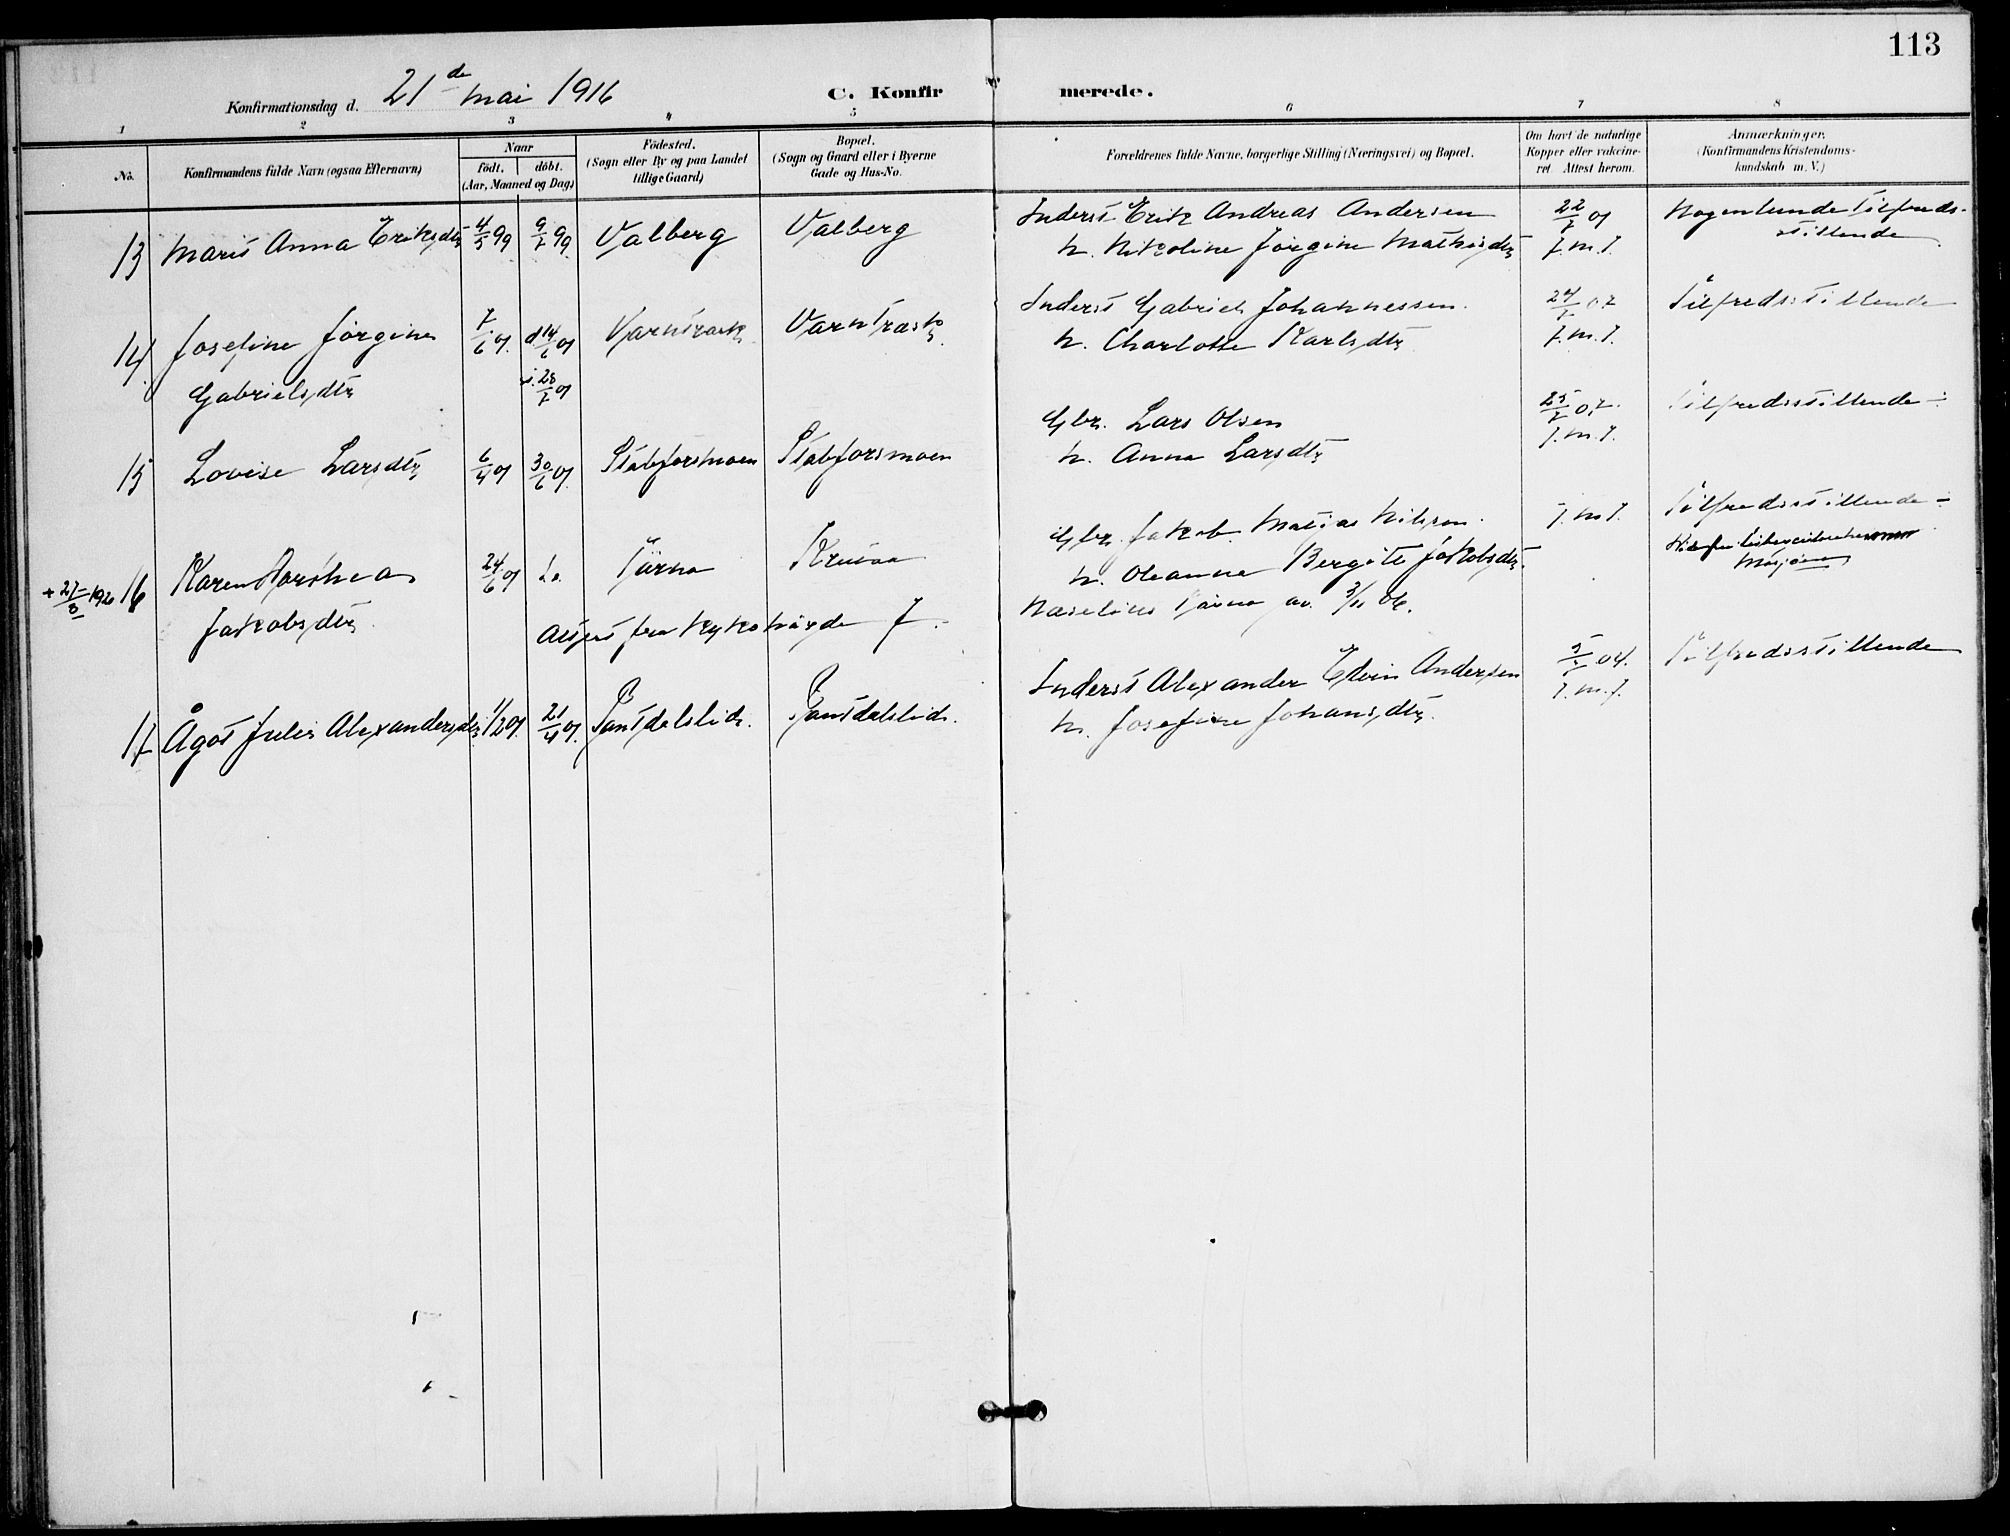 113
Konfirmationsdag d. 21de mai 1916
C. Konfirmerede.
1 2 3 4 5 6 7 8
No.
Konfirmandens fulde Navn (ogsaa Efternavn)
Naar
födt. döbt.
(Aar, Maaned og Dag)
Födested.
(Sogn eller By og paa Landet
tillige Gaard)
Bopæl.
(Sogn og Gaard eller i Byerne
Gade og Hus-No.
Forældrenes fulde Navne, borgerlige Stilling (Næringsvei) og Bopæl.
Om havt de naturlige
Kopper eller vakcine-
ret. Attest herom.
Anmærkninger.
(Konfirmandens Kristendoms-
kundskab m. V.)
13 Marit Anna Eriksdtr 4/5 99 9/7 99 Valberg Valberg
Inderst Erik Andreas Andersen
h. Nikoline Jørgine Mathisdtr
22/7 01
J.M.J.
Nogenlunde Tilfreds-
stillende
14 Josefine Jørgine
Gabrielsdtr
7/6 01 d 14/6 01
i. 28/7 01
Varntræsk Varntræsk
Inderst Gabriel Johannessen
h. Charlotte Karlsdtr
24/7 02
J.M.J.
Tilfredsstillende
15 Lovise Larsdtr 6/4 01 30/6 01 Stabforsmoen Stabforsmoen
Gbr. Lars Olsen
h. Anna Larsdtr
25/7 02
J.M.J.
Tilfredsstillende
+ 27/3 1920 16 Karen Dorthea
Jakobsdtr
24/6 01 Tärna
Gbr. Jakob Matias Nilsen
h. Oleanna Bergite Jakobsdtr
Tärna av 3/11 06.
J.M.J.
Tilfredsstillende
Mosjøen
17 Ågot Julie Alexandersdtr 1/2 01 21/4 01
Inderst Alexander Edvin Andersen
h. Josefine Johansdtr
04.
J.M.J.
Tilfredsstillende